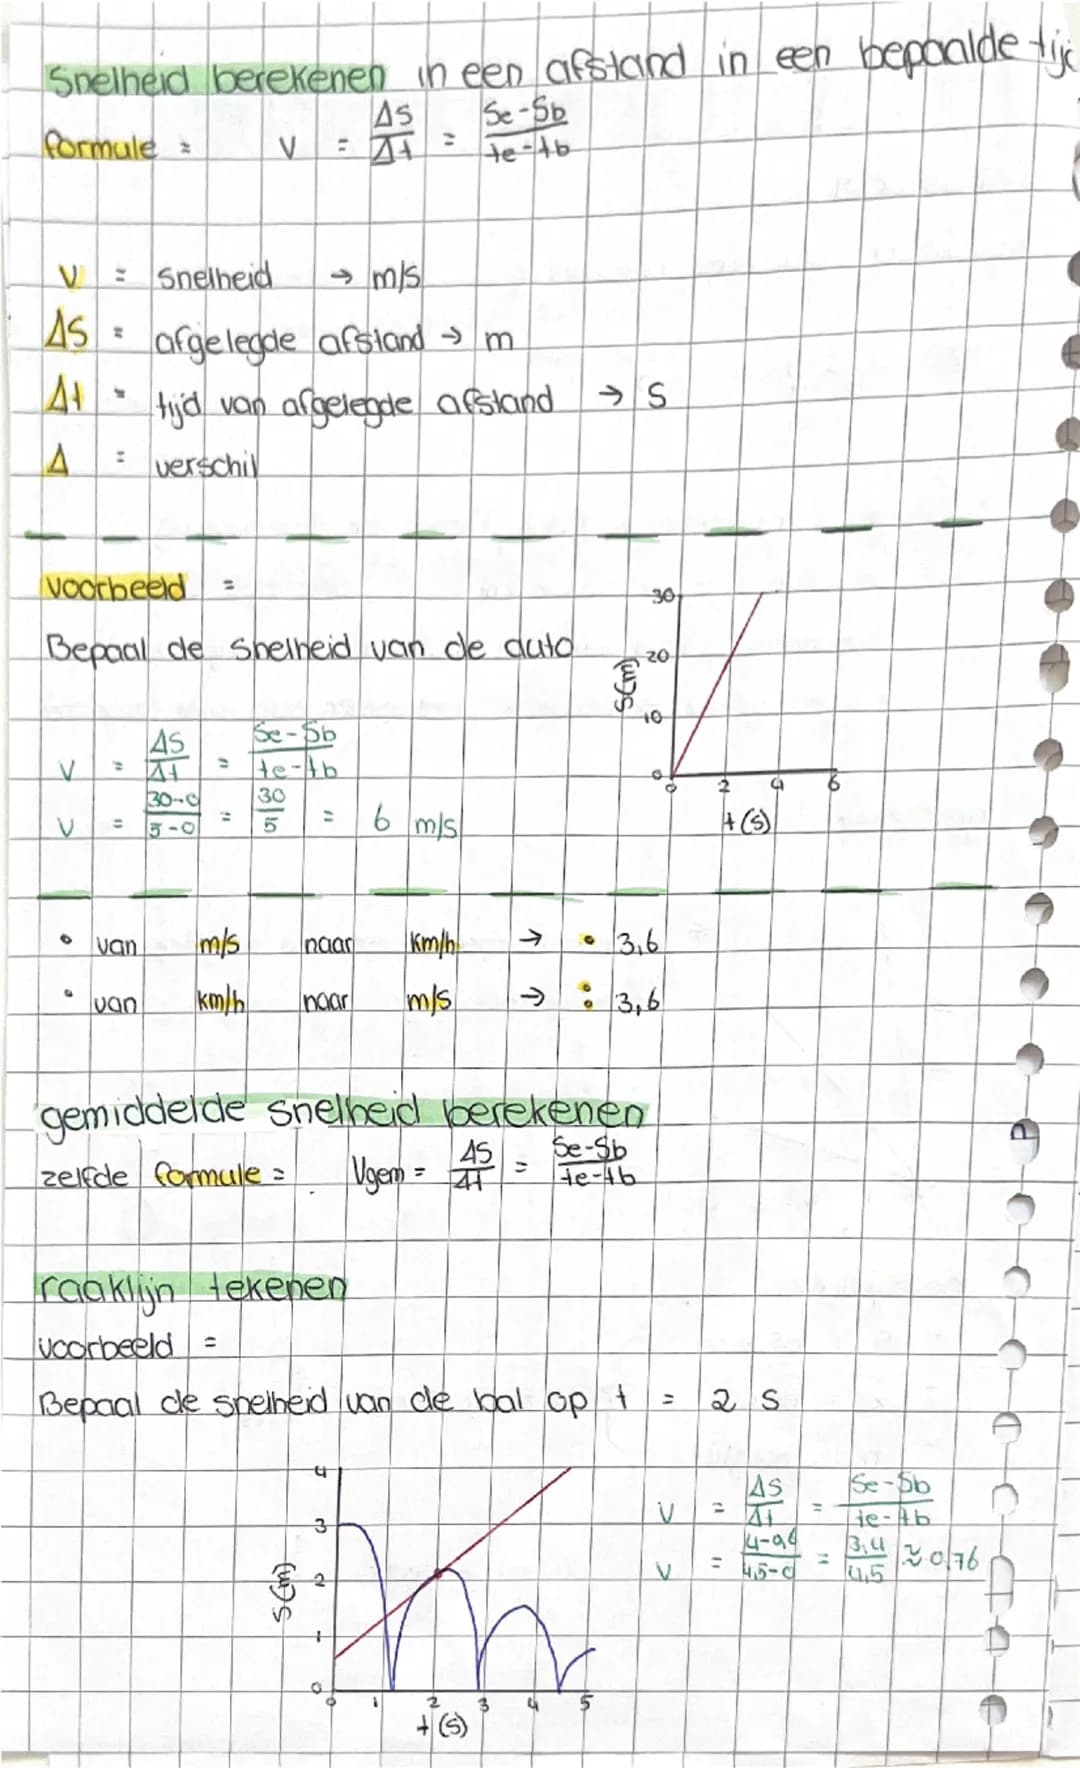 Snelheid berekenen in een afstand in een bepaalde tijd
formule = v = Δs/Δt = Se-Sb/te-tb
V = snelheid → m/s
ΔS = afgelegde afstand → m
Δt = tijd van afgelegde afstand → S
Δ = verschil
voorbeeld =
Bepaal de snelheid van de auto
V = ΔS/Δt = Se-Sb/te-tb
V = 30-0/5-0 = 30/5 = 6 m/s
30
20
10
0
S(m)
0 2 4 6
t(s)
• van m/s naar km/h → • 3,6
• van km/h naar m/s → : 3,6
gemiddelde snelheid berekenen
zelfde formule = Vgem = ΔS/Δt = Se-Sb/te-tb
raaklijn tekenen
voorbeeld =
Bepaal de snelheid van de bal op t = 2 s
4
3
2
1
0
S(m)
0 1 2 3 4 5
t(s)
V = ΔS/Δt = Se-Sb/te-tb
V = 4-0,6/4,5-0 = 3,4/4,5 ≈ 0,76